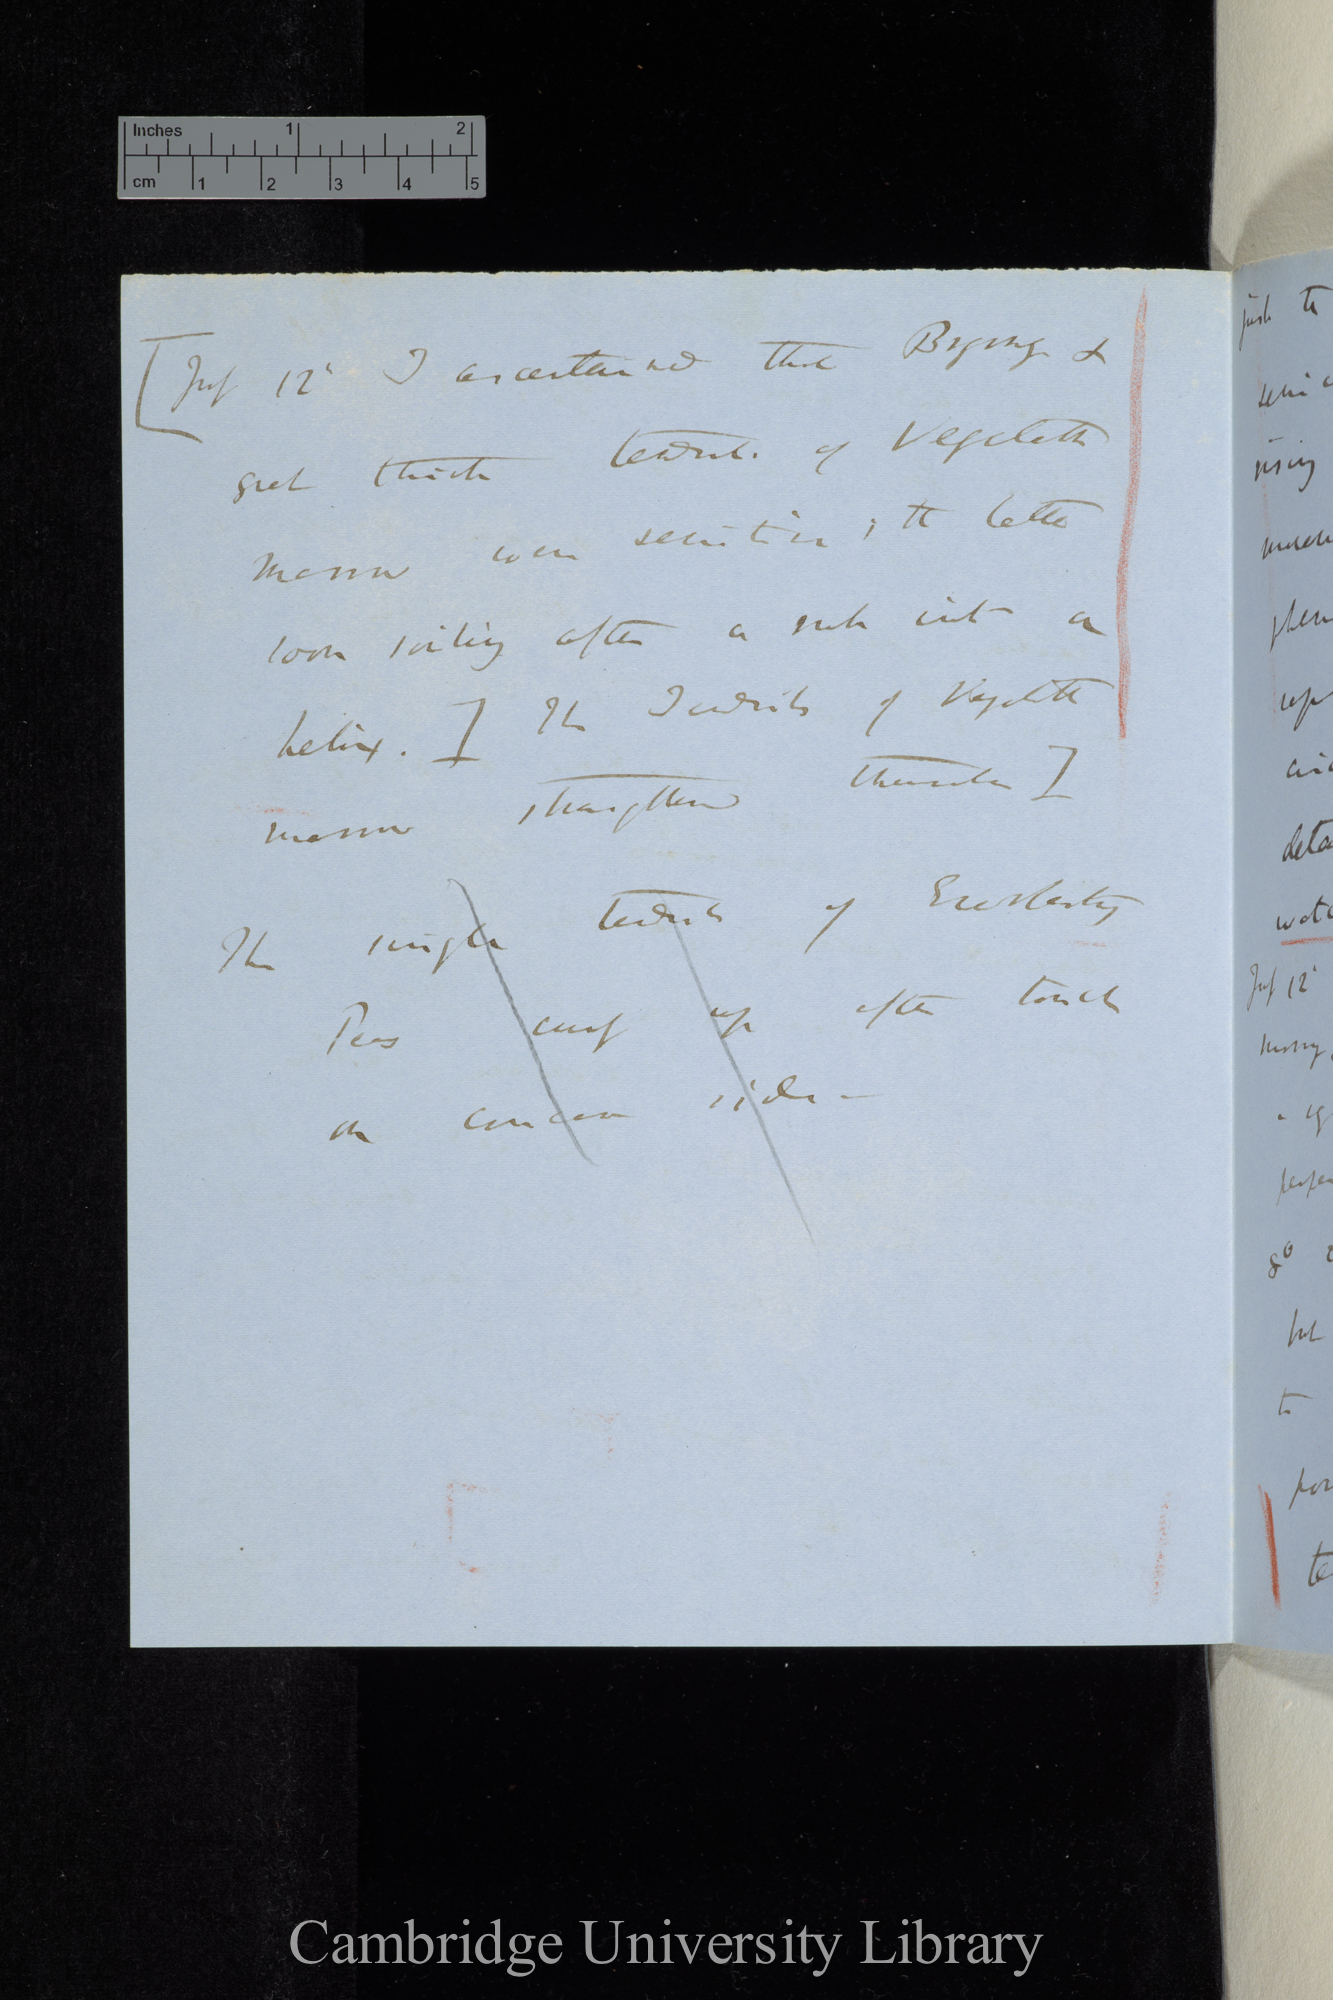 Inches 1 2
cm 1 2 3 4 5
[July 12' I ascertained that Bryony &
great thick tendrils of Vegetable
Marrow were sensitive; the latter
soon coiling after a rub into a
helix.] The Tendrils of Vegetable
marrow straighten themselves]
The single tendrils of Everlasting
Peas curl up after touch
on concave side —
just to
rising
July 12'
to
Cambridge University Library